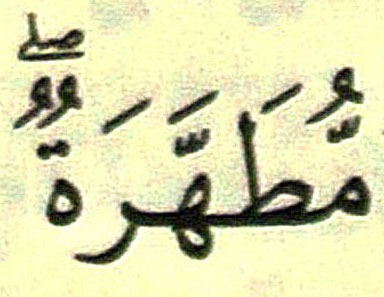 مُّطَهَّرَةٌۖ